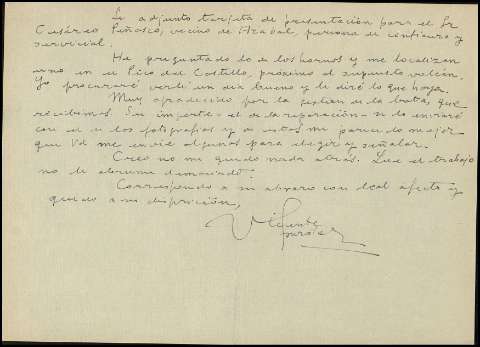 Le adjunto tarjeta de presentación para el Sr
Cesáreo Peñasco, vecino de Arabal, persona de confianza y
servicial.
He preguntado de los hornos y me localizan
uno en el Pico del Castillo, próximo al supuesto volcán.
Yo procuraré verle un día bueno y le diré lo que haya.
Muy agradecido por la gestión de la bota, que
recibimos. Su importe - el de la reparación - se lo enviaré
con el de las fotografías y de estas me parece lo mejor
que Vd me envíe algunas para elegir y señalar.
Creo no me quedo nada atrás. Que el trabajo
no le abrume demasiado!
Correspondo a su abrazo con leal afecto y
quedo a su disposición,
Vicente